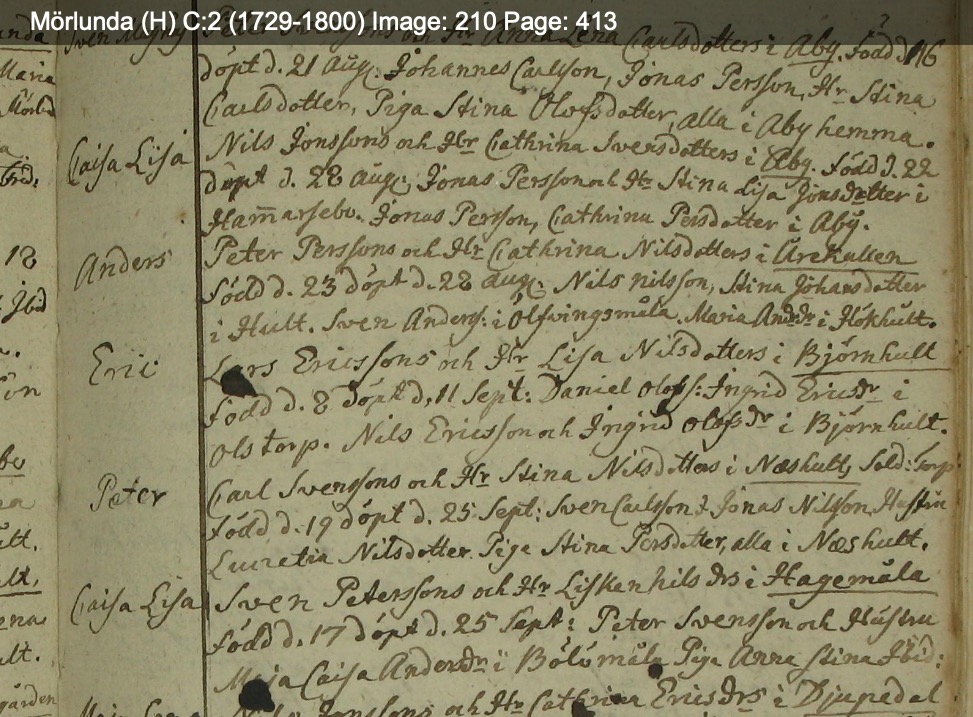 Mörlunda (H) C:2 (1729-1800) Image: 210 Page: 413
och Hr Anna Lena Carlsdotters i Åby. född d. 16
döpt d. 21 Aug: Johannes Carlsson, Jonas Persson, Hr Stina
Carlsdotter, Piga Stina Olofsdotter, alla i Åby hemma.
Caisa Lisa
Nils Jonssons och Hr Cathrina Svensdotters i Åby. född d. 22
döpt d. 28 Aug: Jonas Persson och Hr Stina Lisa Jonsdotter i
Hammarsebo. Jonas Persson, Cathrina Persdotter i Åby.
Anders
Peter Perssons och Hr Cathrina Nilsdotters i Årekullen
född d. 23 döpt d. 28 Aug: Nils nilsson, Stina Johansdotter
i Hult. Sven Anders: i Ölfvingsmåla. Maria Andrdr i Hökhult.
Eric
Lars Ericssons och Hr Lisa Nilsdotters i Björnhult
född d. 8 döpt d. 11 Sept: Daniel Olofs: Ingrid Ericsdr i
Olstorp. Nils Ericsson och Ingrid Olofsdr i Björnhult.
Peter
Carl Svenssons och Hr Stina Nilsdotters i Næshult, Sold: Torp
född d. 19 döpt d. 25 Sept: Sven Carlsson Jonas Nilsson Hustrun
Lucretia Nilsdotter. Piga Stina Persdotter, alla i Næshult.
Caisa Lisa
Sven Peterssons och Hr Lisken nils drs i Hagemåla
född d. 17 döpt d. 25 Sept: Peter Svensson och Hustru
Maja Caisa Andersdr i Bölsmåla Piga Anna Stina Ibid:
Jonssons och Hr Cathrina Ericsdrs i Djupedal